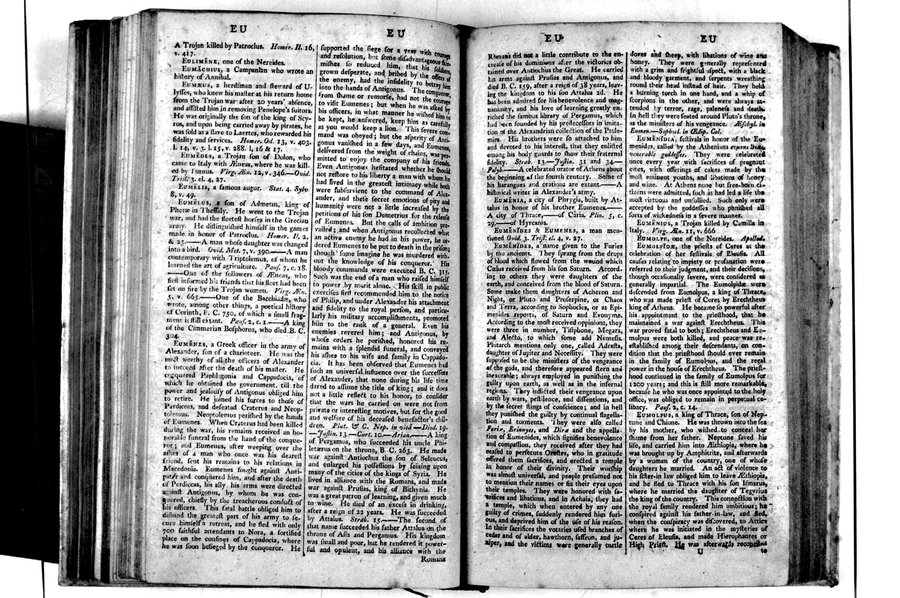 EU
EU
A Trojan killed by Patroclus. Homer. Il. 16,
v. 417.
EULIMENE, one of the Nereides.
EUMACHIUS, a Campanian who wrote an
hiſtory of Annibal.
EUMÆUS, a herdſman and ſteward of U-
lyſſes, who knew his maſter at his return home
from the Trojan war after 20 years' abſence,
and aſſiſted him in removing Penelope's ſuitors.
He was originally the ſon of the king of Scy-
ros, and upon being carried away by pirates, he
was ſold as a ſlave to Laertes, who rewarded his
fidelity and ſervices. Homer. Od. 13, v. 403.
l. 14, v. 3. l. 15, v. 288. l. 16 & 17.
EUMEDES, a Trojan ſon of Dolon, who
came to Italy with Æneas, where he was kill-
ed by Turnus. Virg. Æn. 12, v. 346.—Ovid.
Triſt. 3. el. 4, 27.
EUMELIS, a famous augur. Stat. 4. Sylv.
8, v. 49.
EUMELUS, a ſon of Admetus, king of
Pheræ in Theſſaly. He went to the Trojan
war, and had the fleeteſt horſes in the Grecian
army. He diſtinguiſhed himſelf in the games
made in honor of Patroclus. Homer. Il. 2,
& 23.—A man whoſe daughter was changed
into a bird. Ovid. Met. 7, v. 390.—A man
contemporary with Triptolemus, of whom he
learned the art of agriculture. Pauſ. 7, c. 18.
—One of the followers of Æneas, who
firſt informed his friends that his fleet had been
ſet on fire by the Trojan women. Virg. Æn.
5, v. 665.—One of the Bacchiadæ, who
wrote, among other things, a poetical hiſtory
of Corinth, B. C. 750, of which a ſmall frag-
ment is ſtill extant. Pauſ. 2, c. 1.—A king
of the Cimmerian Boſphorus, who died B. C.
304.
EUMENES, a Greek officer in the army of
Alexander, ſon of a charioteer. He was the
moſt worthy of all the officers of Alexander
to ſucceed after the death of his maſter. He
conquered Paphlagonia and Cappadocia, of
which he obtained the government, till the
power and jealouſy of Antigonus obliged him
to retire. He joined his forces to thoſe of
Perdiccas, and defeated Craterus and Neop-
tolemus. Neoptolemus periſhed by the hands
of Eumenes. When Craterus had been killed
during the war, his remains received an ho-
norable funeral from the hand of the conque-
ror; and Eumenes, after weeping over the
aſhes of a man who once was his deareſt
friend, ſent his remains to his relations in
Macedonia. Eumenes fought againſt Anti-
pater and conquered him, and after the death
of Perdiccas, his ally, his arms were directed
againſt Antigonus, by whom he was con-
quered, chiefly by the treacherous conduct of
his officers. This fatal battle obliged him to
diſband the greateſt part of his army to ſe-
cure himſelf a retreat, and he fled with only
700 faithful attendants to Nora, a fortified
place on the confines of Cappadocia, where
he was ſoon beſieged by the conqueror. He
ſupported the ſiege for a year with courage
and reſolution, but ſome diſadvantageous ſkir-
miſhes ſo reduced him, that his ſoldiers,
grown deſperate, and bribed by the offers of
the enemy, had the infidelity to betray him
into the hands of Antigonus. The conqueror,
from ſhame or remorſe, had not the courage
to viſit Eumenes; but when he was aſked by
his officers, in what manner he wiſhed him to
be kept, he anſwered, keep him as carefully
as you would keep a lion. This ſevere com-
mand was obeyed; but the aſperity of Anti-
gonus vaniſhed in a few days, and Eumenes,
delivered from the weight of chains, was per-
mitted to enjoy the company of his friends.
Even Antigonus heſitated whether he ſhould
not reſtore to his liberty a man with whom he
had lived in the greateſt intimacy while both
were ſubſervient to the command of Alex-
ander, and theſe ſecret emotions of pity and
humanity were not a little increaſed by the
petitions of his ſon Demetrius for the releaſe
of Eumenes. But the calls of ambition pre-
vailed; and when Antigonus recollected what
an active enemy he had in his power, he or-
dered Eumenes to be put to death in the priſon;
though ſome imagine he was murdered with-
out the knowledge of his conqueror. His
bloody commands were executed B. C. 315.
Such was the end of a man who raiſed himſelf
to power by merit alone. His ſkill in public
exerciſes firſt recommended him to the notice
of Philip, and under Alexander his attachment
and fidelity to the royal perſon, and particu-
larly his military accompliſhments, promoted
him to the rank of a general. Even his
enemies revered him; and Antigonus, by
whoſe orders he periſhed, honored his re-
mains with a ſplendid funeral, and conveyed
his aſhes to his wife and family in Cappado-
cia. It has been obſerved that Eumenes had
ſuch an univerſal influence over the ſucceſſors
of Alexander, that none during his life time
dared to aſſume the title of king; and it does
not a little reflect to his honor, to conſider
that the wars he carried on were not from
private or intereſting motives, but for the good
and welfare of his deceaſed benefactor's chil-
dren. Plut. & C. Nep. in vitâ.—Diod. 19.
—Juſtin. 13.—Curt. 10.—Arrian.—A king
of Pergamus, who ſucceeded his uncle Phi-
leterus on the throne, B. C. 263. He made
war againſt Antiochus the ſon of Seleucus,
and enlarged his poſſeſſions by ſeizing upon
many of the cities of the kings of Syria. He
lived in alliance with the Romans, and made
war againſt Pruſias, king of Bithynia. He
was a great patron of learning, and given much
to wine. He died of an exceſs in drinking,
after a reign of 22 years. He was ſucceeded
by Attalus. Strab. 15.—The ſecond of
that name ſucceeded his father Attalus on the
throne of Aſia and Pergamus. His kingdom
was ſmall and poor, but he rendered it power-
ful and opulent, and his alliance with the
Romans
EU
EU
Romans did not a little contribute to the en-
creaſe of his dominions after the victories ob-
tained over Antiochus the Great. He carried
his arms againſt Pruſias and Antigonus, and
died B. C. 159, after a reign of 38 years, leav-
ing the kingdom to his ſon Attalus 2d. He
has been admired for his benevolence and mag-
nanimity, and his love of learning greatly en-
riched the famous library of Pergamus, which
had been founded by his predeceſſors in imita-
tion of the Alexandrian collection of the Ptole-
mies. His brothers were ſo attached to him
and devoted to his intereſt, that they enliſted
among his body guards to ſhow their fraternal
fidelity. Strab. 13.—Juſtin. 31 and 34.—
Polyb.—A celebrated orator of Athens about
the beginning of the fourth century. Some of
his harangues and orations are extant.—A
hiſtorical writer in Alexander's army.
EUMENIA, a city of Phrygia, built by At-
talus in honor of his brother Eumenes.—
A city of Thrace,—of Caria. Plin. 5, c.
29.—of Hyrcania.
EUMENIDES & EUMENES, a man men-
tioned Ovid. 3. Triſt. el. 4, v. 27.
EUMENIDES, a name given to the Furies
by the ancients. They ſprang from the drops
of blood which flowed from the wound which
Cœlus received from his ſon Saturn. Accord-
ing to others they were daughters of the
earth, and conceived from the blood of Saturn.
Some make them daughters of Acheron and
Night, or Pluto and Proſerpine, or Chaos
and Terra, according to Sophocles, or as Epi-
menides reports, of Saturn and Evonyme.
According to the moſt received opinions, they
were three in number, Tiſiphone, Megara,
and Alecto, to which ſome add Nemeſis.
Plutarch mentions only one, called Adraſta,
daughter of Jupiter and Neceſſity. They were
ſuppoſed to be the miniſters of the vengeance
of the gods, and therefore appeared ſtern and
inexorable; always employed in puniſhing the
guilty upon earth, as well as in the infernal
regions. They inflicted their vengeance upon
earth by wars, peſtilence, and diſſentions, and
by the ſecret ſtings of conſcience; and in hell
they puniſhed the guilty by continual flagella-
tion and torments. They were alſo called
Furiæ, Erinnyes, and Diræ and the appella-
tion of Eumenides, which ſignifies benevolence
and compaſſion, they received after they had
ceaſed to perſecute Oreſtes, who in gratitude
offered them ſacrifices, and erected a temple
in honor of their divinity. Their worſhip
was almoſt univerſal, and people preſumed not
to mention their names or fix their eyes upon
their temples. They were honored with ſa-
crifices and libations, and in Achaia, they had
a temple, which when entered by any one
guilty of crimes, ſuddenly rendered him furi-
ous, and deprived him of the uſe of his reaſon.
In their ſacrifices the votaries uſed branches of
cedar and of alder, hawthorn, ſaffron, and ju-
niper, and the victims were generally turtle
doves and ſheep, with libations of wine and
honey. They were generally repreſented
with a grim and frightful aſpect, with a black
and bloody garment, and ſerpents wreathing
round their head inſtead of hair. They held
a burning torch in one hand, and a whip of
ſcorpions in the other, and were always at-
tended by terror, rage, paleneſs and death.
In hell they were ſeated around Pluto's throne,
as the miniſters of his vengeance. Æſchyl. in
Eumen.—Sophocl. in Œdip. Col.
EUMENIDIA, feſtivals in honor of the Eu-
menides, called by the Athenians
venerable goddeſſes. They were celebrated
once every year with ſacrifices of pregnant
ewes, with offerings of cakes made by the
moſt eminent youths, and libations of honey
and wine. At Athens none but free-born ci-
tizens were admitted, ſuch as had led a life the
moſt virtuous and unſullied. Such only were
accepted by the goddeſſes who puniſhed all
ſorts of wickedneſs in a ſevere manner.
EUMENIUS, a Trojan killed by Camilla in
Italy. Virg. Æn. 11, v. 666.
EUMOLPE, one of the Nereides. Apollod.
EUMOLPIDÆ, the prieſts of Ceres at the
celebration of her feſtivals of Eleuſis. All
cauſes relating to impiety or profanation were
referred to their judgment, and their deciſions,
though occaſionally ſevere, were conſidered as
generally impartial. The Eumolpidæ were
deſcended from Eumolpus, a king of Thrace,
who was made prieſt of Ceres by Erechtheus
king of Athens. He became ſo powerful after
his appointment to the prieſthood, that he
maintained a war againſt Erechtheus. This
war proved fatal to both; Erechtheus and Eu-
molpus were both killed, and peace was re-
eſtabliſhed among their deſcendants, on con-
dition that the prieſthood ſhould ever remain
in the family of Eumolpus, and the regal
power in the houſe of Erechtheus. The prieſt-
hood continued in the family of Eumolpus for
1200 years; and this is ſtill more remarkable,
becauſe he who was once appointed to the holy
office, was obliged to remain in perpetual ce-
libacy. Pauſ. 2, c. 14.
EUMOLPUS, a king of Thrace, ſon of Nep-
tune and Chione. He was thrown into the ſea
by his mother, who wiſhed to conceal her
ſhame from her father. Neptune ſaved his
life, and carried him into Æthiopia, where he
was brought up by Amphitrite, and afterwards
by a woman of the country, one of whoſe
daughters he married. An act of violence to
his ſiſter-in law obliged him to leave Æthiopia,
and he fled to Thrace with his ſon Iſmarus,
where he married the daughter of Tegyrius
the king of the country. This connection with
the royal family rendered him ambitious; he
conſpired againſt his father-in-law, and fled,
when the conſpiracy was diſcovered, to Attica
where he was initiated in the myſteries of
Ceres of Eleuſis, and made Hierophantes or
High Prieſt. He was afterwards reconciled
U
to